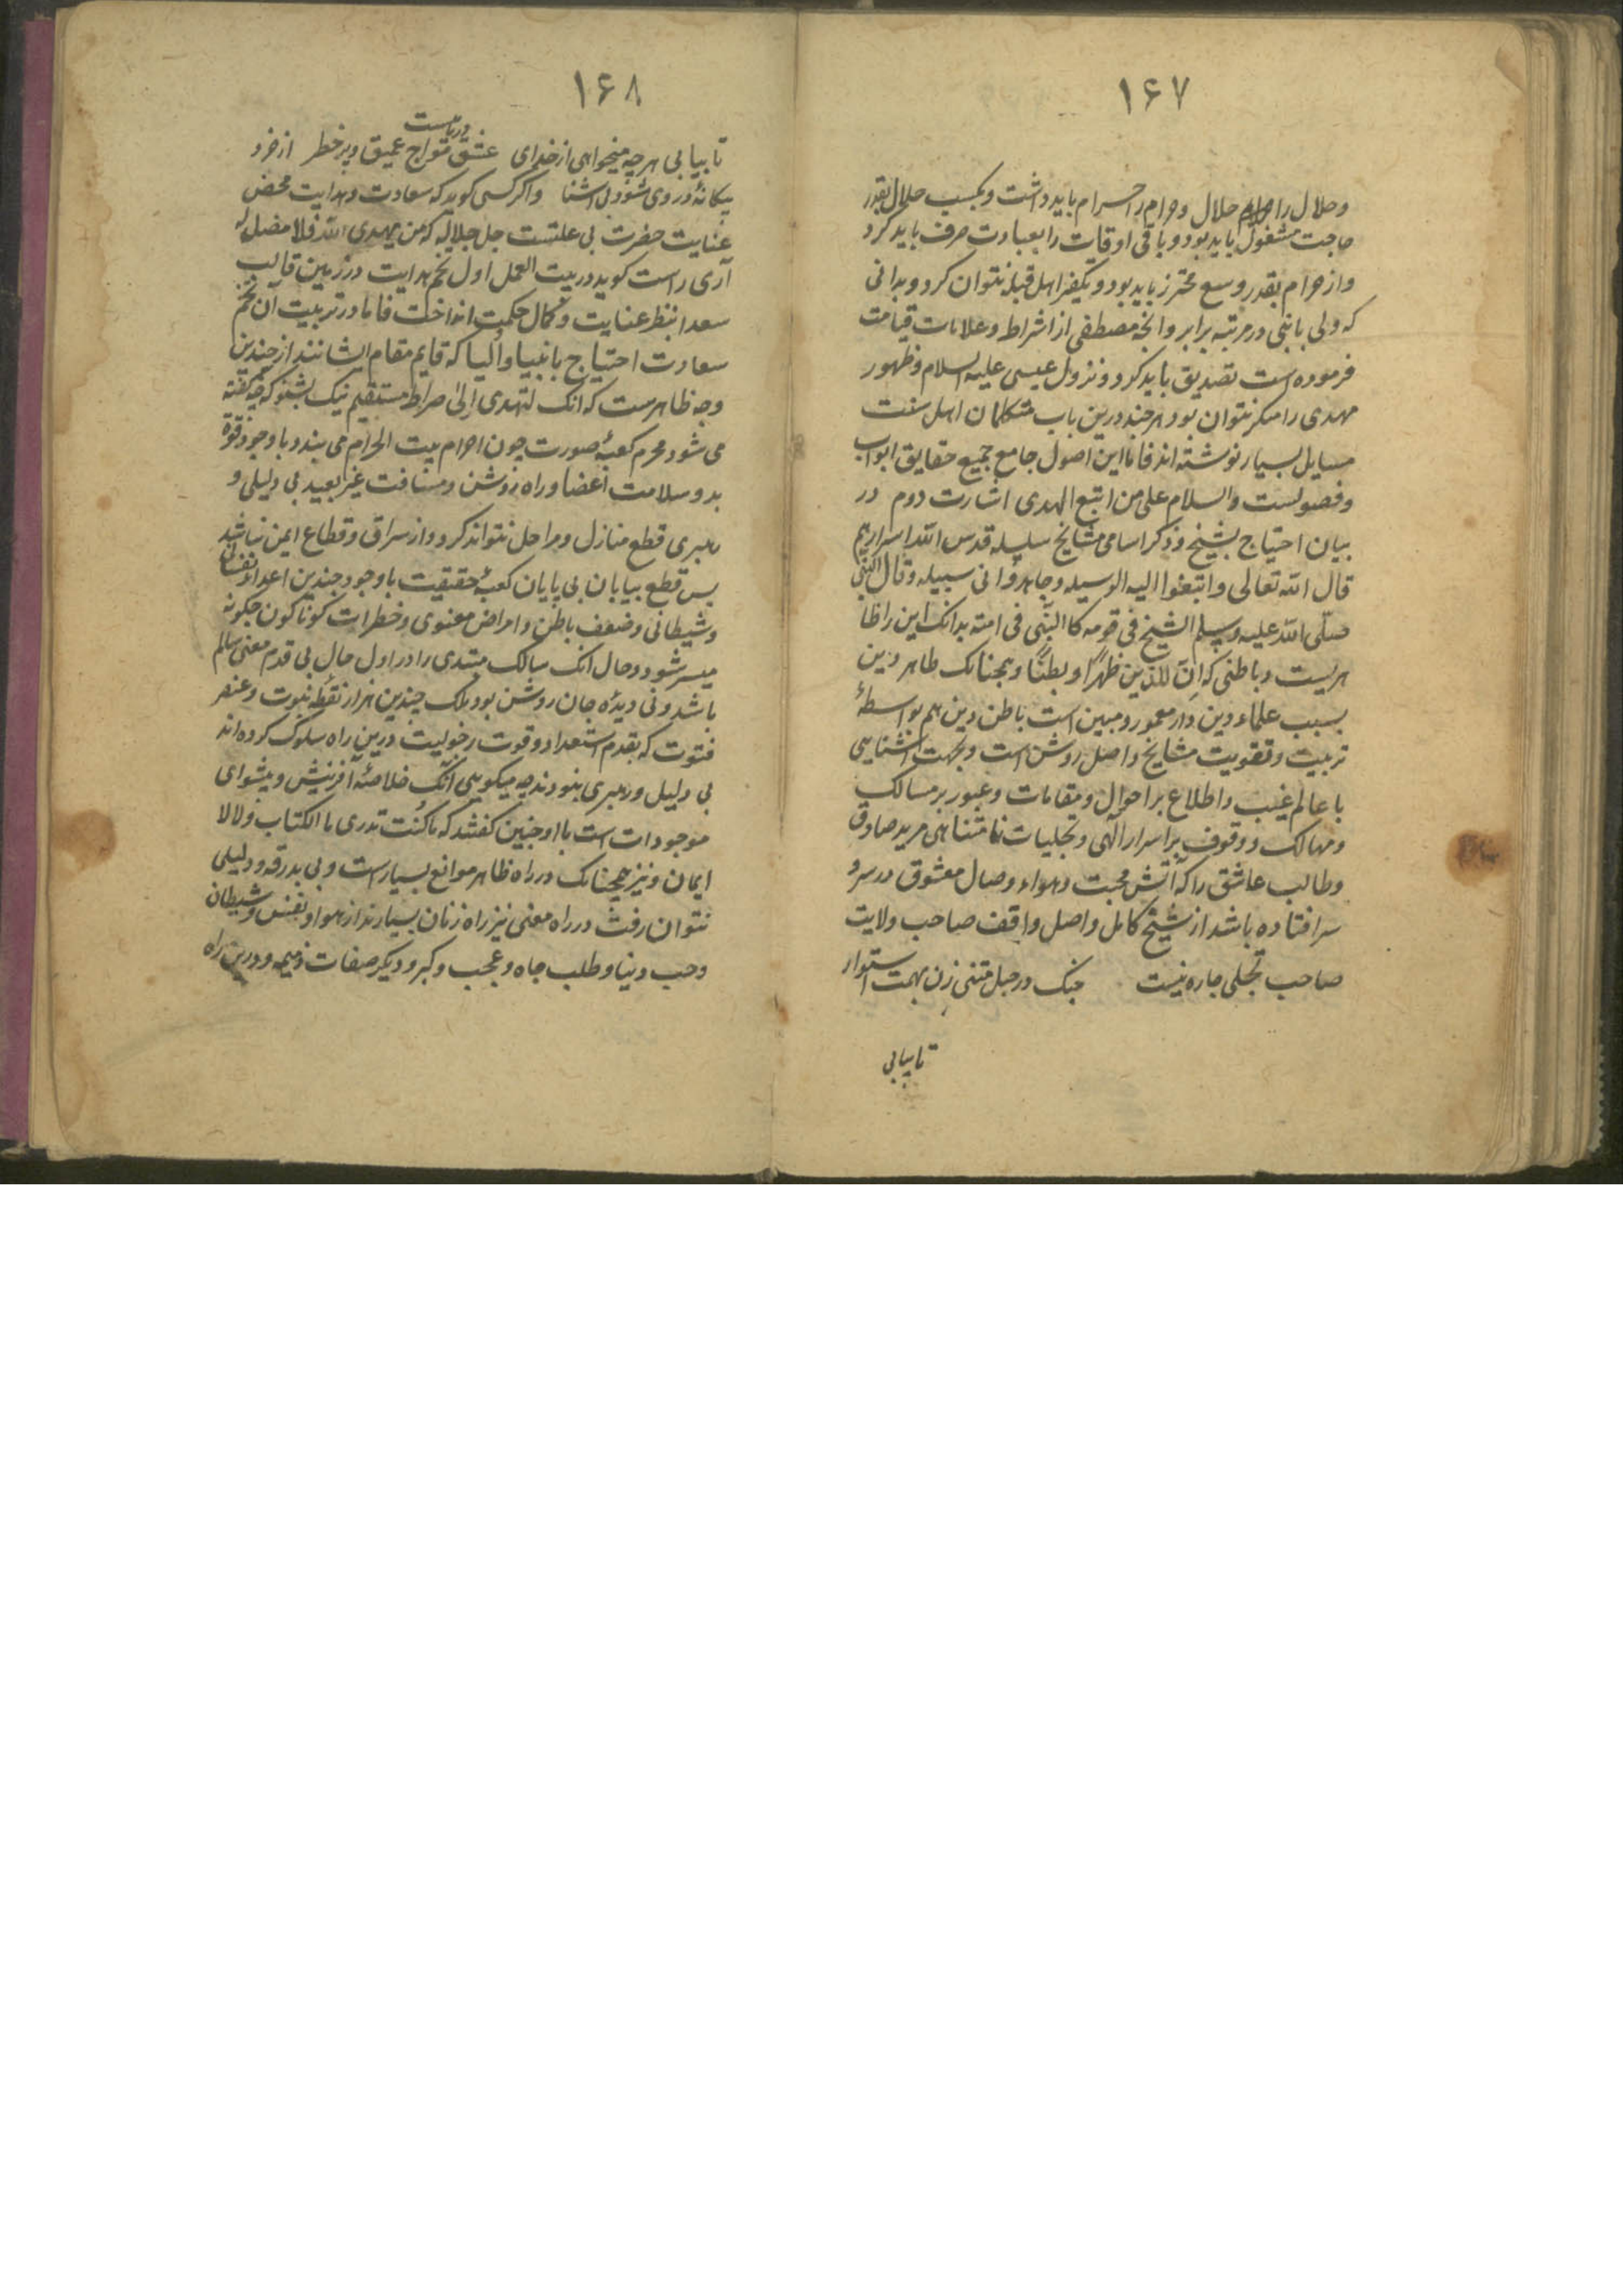 ۱۶۷
وحلال را حرام حلال وحرام را حرام باید داشت وبکسب حلال بقدر
حاجت مشغول باید بود و باقی اوقات را بعبادت صرف باید کرد
واز حرام بقدر وسع محترز باید بود و تکفیر اهل قبله نتوان کرد و بدانی
که ولی با نبی در مرتبه برابر وانچه مصطفی از اشراط وعلامات قیامت
فرموده است تصدیق باید کرد و نزول عیسی علیه السلام وظهور
مهدی را منکر نتوان بود هرچند درین باب متکلمان اهل سنت
مسایل بسیار نوشته اند فاما این اصول جامع جمیع حقایق ابواب
وفصولست والسلام علی من اتبع الهدی اشارت دوم در
بیان احتیاج بشیخ وذکر اسامی مشایخ سلسله قدس الله اسرارهم
قال الله تعالی وابتغوا الیه الوسیله وجاهدوا فی سبیله وقال النبی
صلّی الله علیه وسلم الشیخ فی قومه کالنبّی فی امته بدانک این را ظا
هریست وباطنی که انّ للدّین ظهرًا وبطنًا وهمچنانک ظاهر دین
بسبب علماء دین دار معمور ومبین است باطن دین هم بواسطهٔ
تربیت وتقویت مشایخ واصل روشن است وبجهت اشنایی
با عالم غیب واطلاع بر احوال ومقامات وعبور بر مسالک
ومهالک و وقوف بر اسرار الهی وتجلیات نامتناهی مرید صادق
وطالب عاشق را که آتش محبت وهواء وصال معشوق در سر و
سر افتاده باشد از شیخ کامل واصل واقف صاحب ولایت
صاحب تجلی چاره نیست چنک در حبل متنی زن بهمت استوار
تا بیابی
۱۶۸
دریاست
تا بیابی هرچه میخواهی از خدای عشق مواج عمیق وپر خطر از خرد
بیکانهٔ در وی شو و بل اشنا واکر کسی کوید که سعادت وهدایت محض
عنایت حضرت بی علتست جل جلاله که من یهدی الله فلا مضل له
آری راست کوید در بیت العمل اول تخم هدایت در زمین قالب
سعدا بنظر عنایت وکمال حکمت انداخت فاما در تربیت ان تخم
سعادت احتیاج بانبیا واولیا که قایم مقام ایشانند از چندین
وجه ظاهرست که انک لتهدی إلیٰ صراط مستقیم نیک بشنو که چه کفته
می شود محرم کعبهٔ صورت چون احرام بیت الحرام می بندد با وجود قوة
بد و سلامت اعضا وراه روشن ومسافت غیر بعید بی دلیلی و
رهبری قطع منازل ومراحل نتواند کرد واز سراق وقطاع ایمن نباشد
پس قطع بیابان بی پایان کعبهٔ حقیقت با وجود چندین اعداء نفسانی
وشیطانی وضعف باطن وامراض معنوی وخطرات کوناکون چکونه
میسر شود وحال انک سالک مبتدی را در اول حال بی قدم معنی سالم
باشد ونی دیدهٔ جان روشن بود بلک چندین هزار نقطهٔ نبوت وعنصر
فتوت که بقدم استعداد وقوت رجولیت درین راه سلوک کرده اند
بی دلیل ورهبری بنودند چه میکویی انک خلاصهٔ آفرینش وپیشوای
موجودات است با او چنین کفتند که ما کُنت تدری ما الکتاب ولا الا
ایمان ونیز همچنانک در راه ظاهر موانع بسیارست وبی بدرقه ودلیلی
نتوان رفت در راه معنی نیز راه زنان بسیارند از هوا ونفس وشیطان
وحب دنیا وطلب جاه وعجب وکبر ودیکر صفات ذمیمه ودرین راه